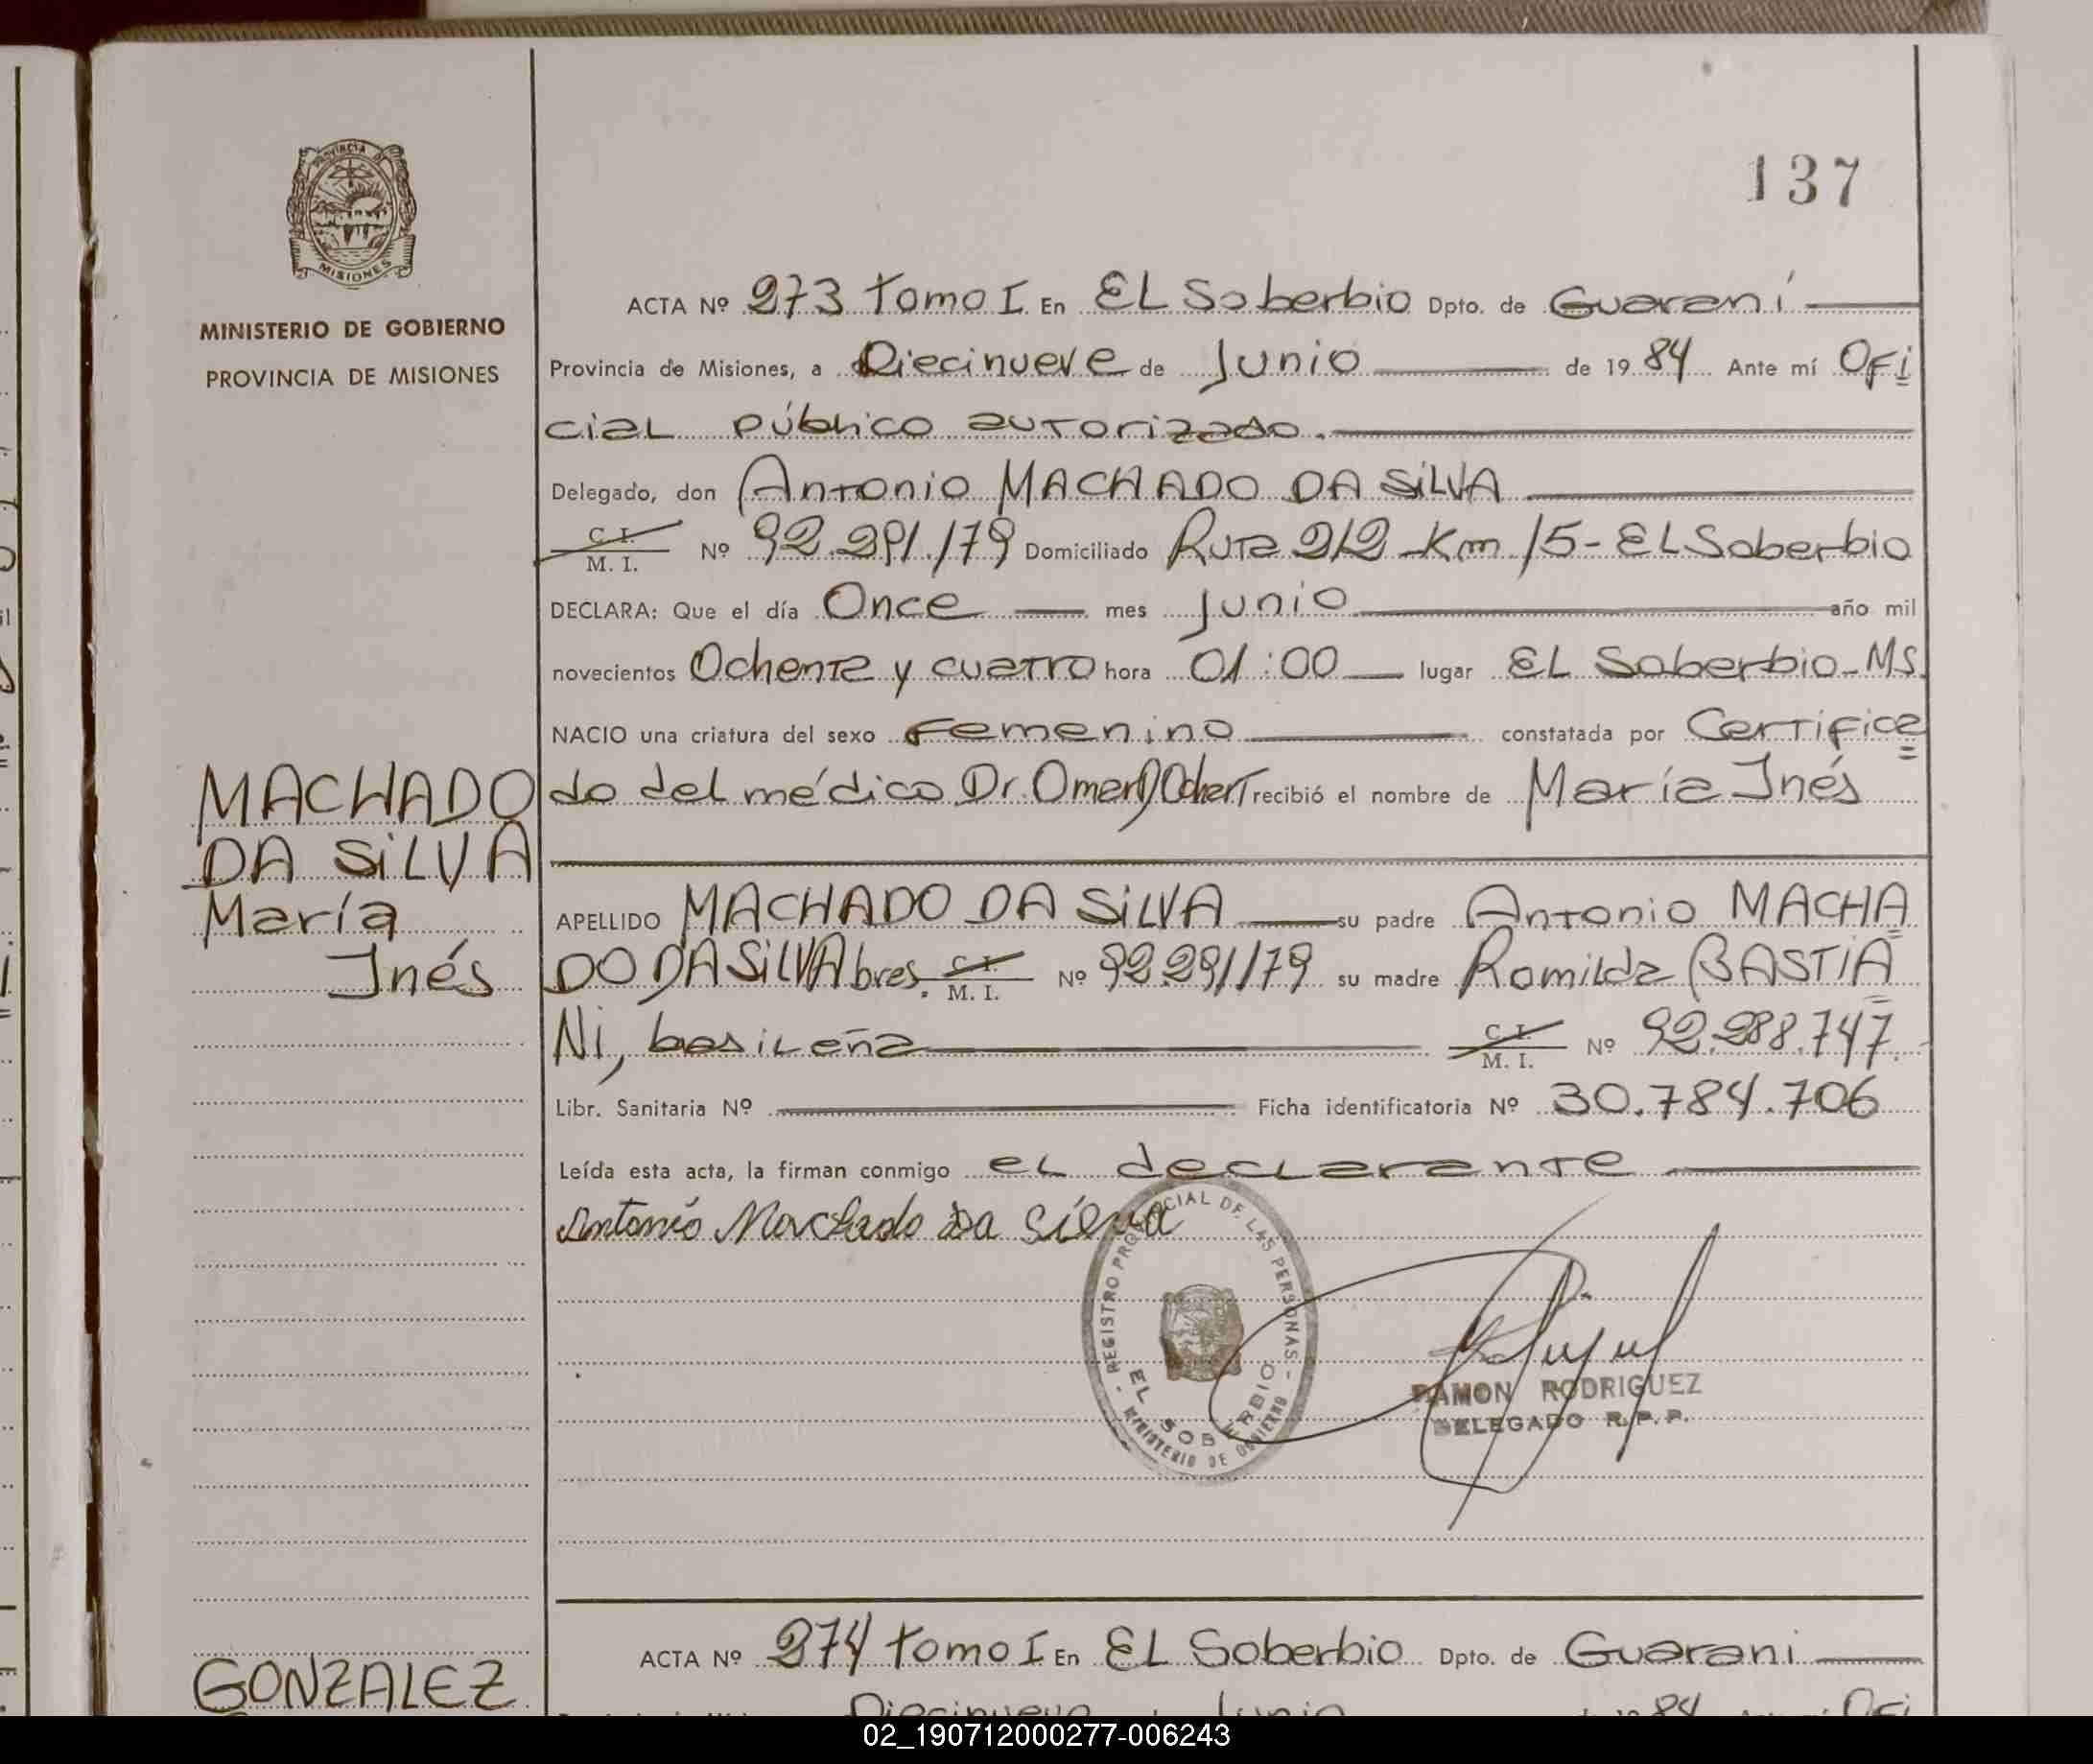 PROVINCIA DE
MISIONES
MINISTERIO DE GOBIERNO
PROVINCIA DE MISIONES
137
ACTA Nº 273 Tomo I En EL Soberbio Dpto. de Guaraní
Provincia de Misiones, a Diecinueve de Junio de 1984 Ante mí Ofi
cial público autorizado.
Delegado, don Antonio MACHADO DA SiLVA
C. I.
M. I. Nº 92.291.179 Domiciliado Ruta 212 Km 15 - EL Soberbio
DECLARA: Que el día Once mes Junio año mil
novecientos Ochenta y cuatro hora 01:00 lugar EL Soberbio-MS.
NACIO una criatura del sexo Femenino constatada por Certifica
do del médico Dr. Omar recibió el nombre de María Inés
MACHADO
DA SiLVA
María
Inés
APELLIDO MACHADO DA SiLVA su padre Antonio MACHA
DO DA SiLVA bres. C. I. M. I. Nº 92.291.179 su madre Romilda BASTIA
Ni, basileña C. I. M. I. Nº 92.288.747.
Libr. Sanitaria Nº Ficha identificatoria Nº 30.784.706
Leída esta acta, la firman conmigo el declarante
Antonio Machado Da Silva
REGISTRO PROVINCIAL DE LAS PERSONAS
EL SOBERBIO
MINISTERIO DE GOBIERNO
RAMON RODRIGUEZ
DELEGADO R.P.P.
ACTA Nº 274 Tomo I En EL Soberbio Dpto. de Guarani
GONZALEZ
Diecinueve Junio 84 Ofi
02_190712000277-006243